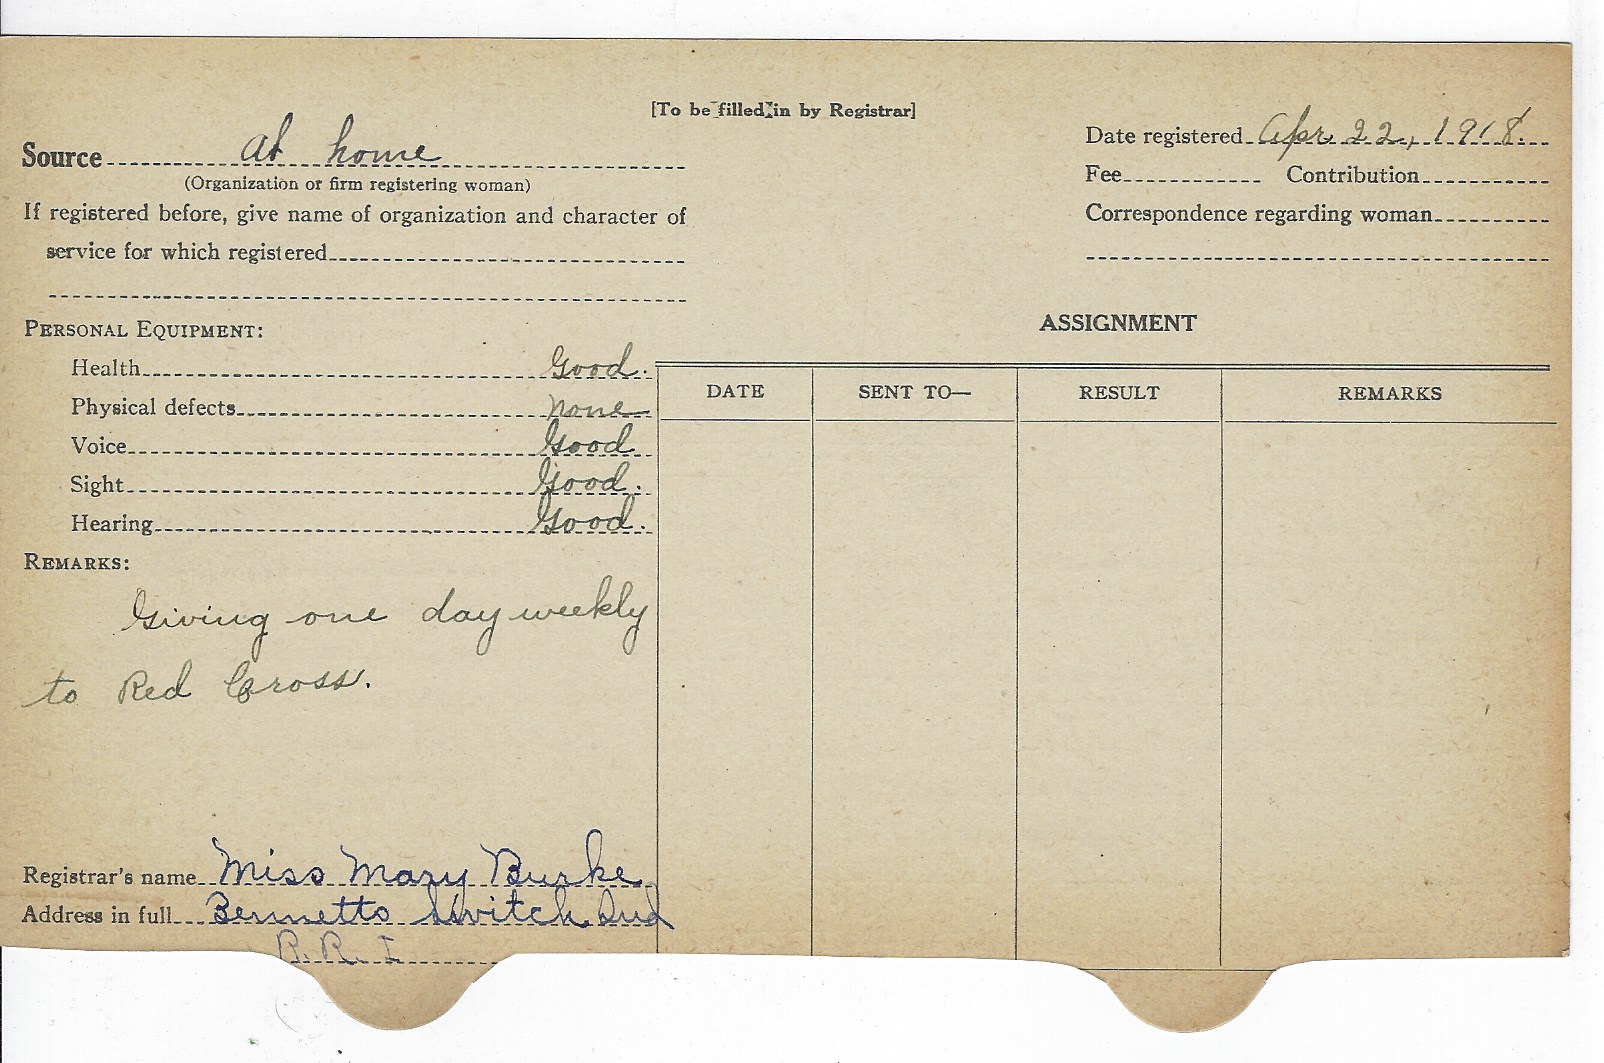 [To be filled in by Registrar]
Source at home
(Organization or firm registering woman)
If registered before, give name of organization and character of
service for which registered
Date registered Apr. 22, 1918.
Fee Contribution
Correspondence regarding woman
PERSONAL EQUIPMENT:
Health Good.
Physical defects none
Voice Good
Sight Good.
Hearing Good.
REMARKS:
Giving one day weekly
to Red Cross.
Registrar's name Miss Mary Burke
Address in full Bennetts Switch Ind
R. R. I
ASSIGNMENT
DATE SENT TO— RESULT REMARKS